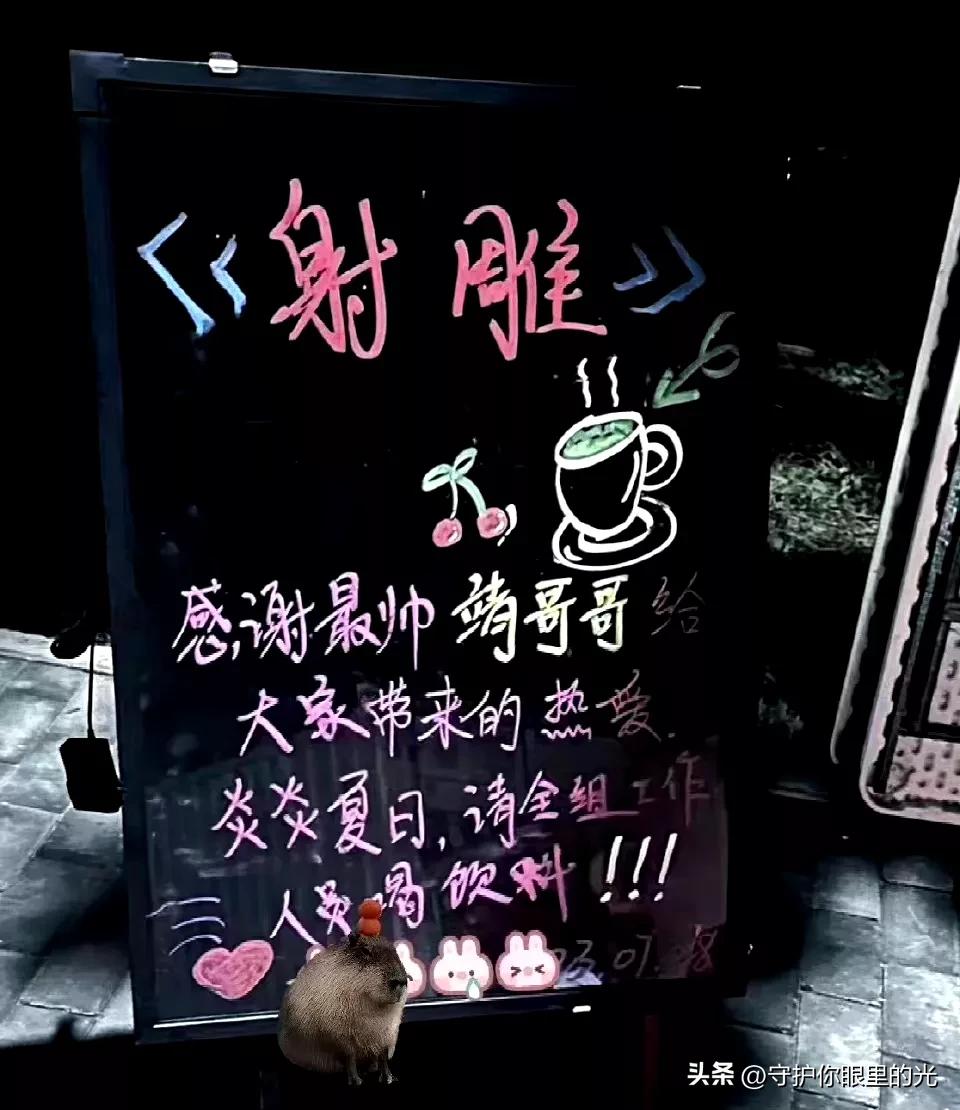 《射雕》
感谢最帅靖哥哥给
大家带来的热爱.
炎炎夏日,请全组工作
人员喝饮料!!!
23.07.08
头条 @守护你眼里的光